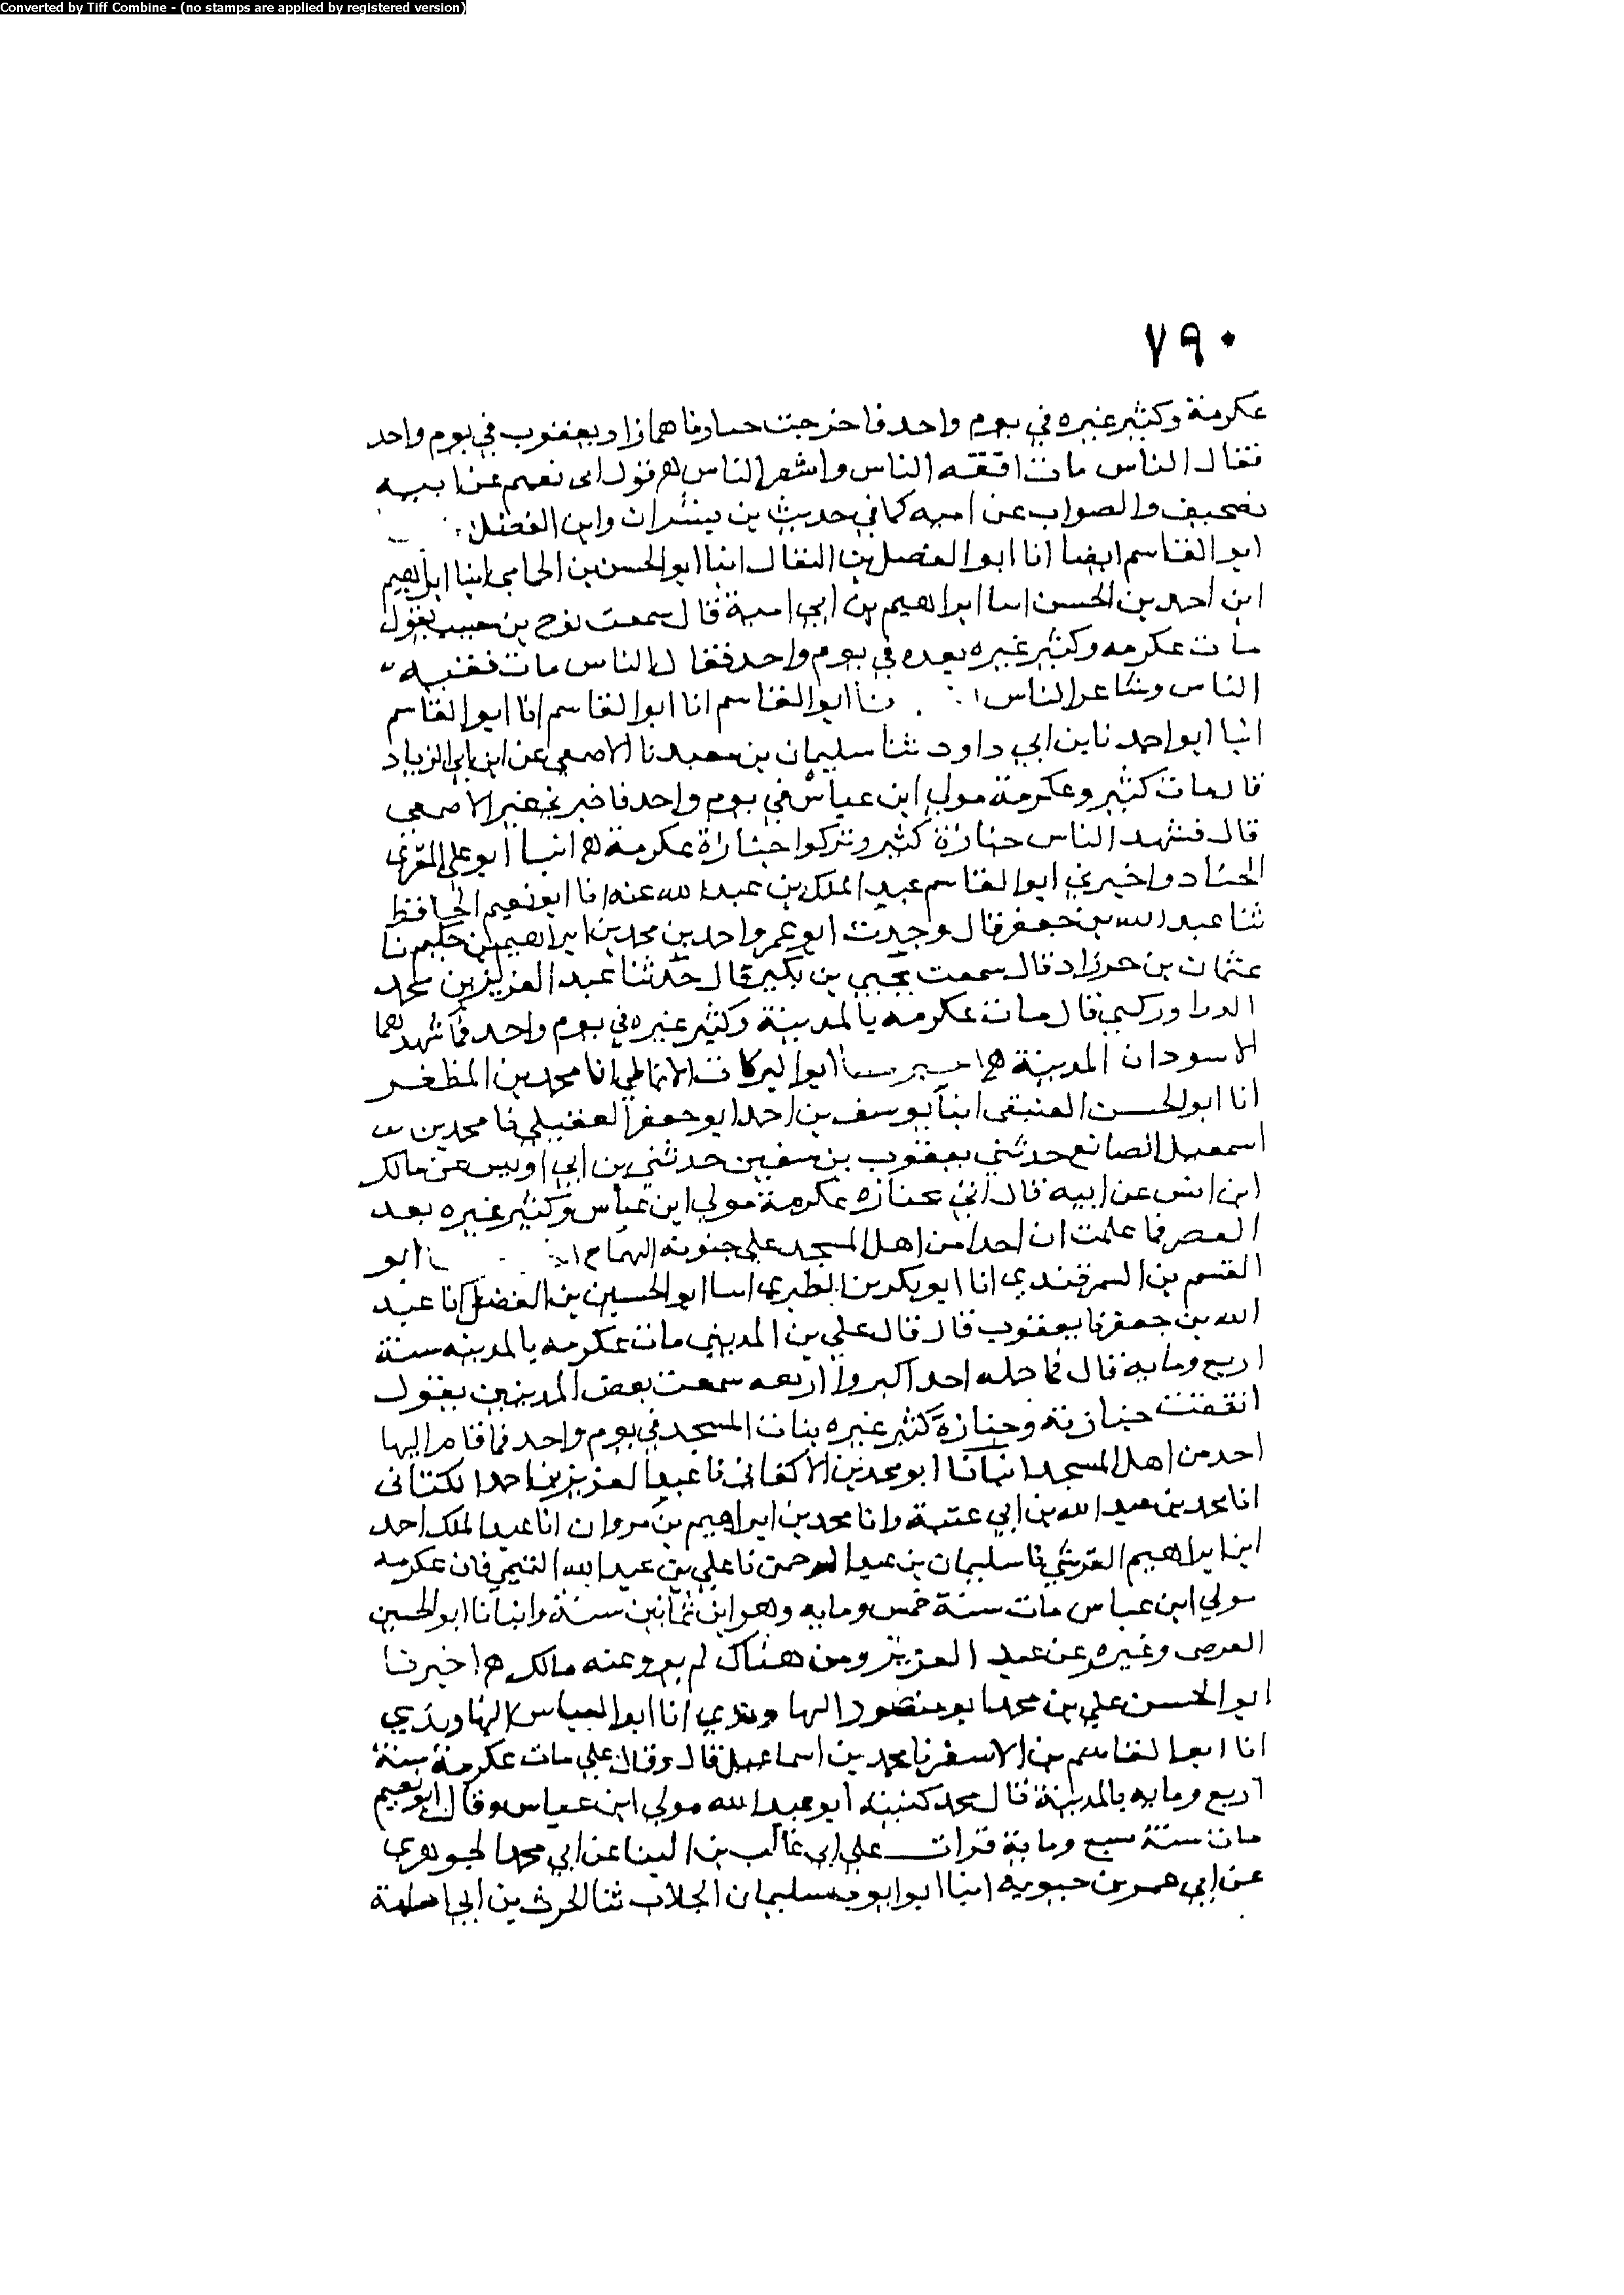 Converted by Tiff Combine - (no stamps are applied by registered version)
٧٩٠
عكرمة وكثير عزه في يوم واحد فاخرجت جنازتاهما زاد يعقوب في يوم واحد
فقال الناس مات افقه الناس واشعر الناس ه قول ابي نعيم عن ابيه
تصحيف والصواب عن اميه كما في حديث بن بشران وابن الفضل
ابو القاسم ايضا انا ابو الفضل بن البقال انبا ابو الحسن بن الحمامي انبا ابراهيم
ابن احمد بن الحسن انبا ابراهيم بن ابي امية قال سمعت نوح بن حبيب يقول
مات عكرمه وكثير عزه بعده في يوم واحد فقال الناس مات فقيه
الناس وشاعر الناس نا ابو القاسم انا ابو القاسم انا ابو القاسم
انبا ابو احمد نا بن ابي داود ثنا سليمان بن معبد نا الاصمعي عن ابن ابي الزياد
قال مات كثير وعكرمة مولي ابن عباس في يوم واحد فاخبرني غير الاصمعي
قال فشهد الناس جنازة كثير وتركوا جنازة عكرمة ه انبا ابو علي المقري
الحداد واخبرني ابو القاسم عبد الملك بن عبد الله عنه انا ابو نعيم الحافظ
ثنا عبد الله بن جعفر قال وجدت ابو عمرو احد بن محمد بن ابراهيم بن حكيم نا
عثمان بن حرزاد قال سمعت يحيي بن بكير قال حدثنا عبد العزيز بن محمد
الدراوركي قال مات عكرمه بالمدينة وكثير عزه في يوم واحد فما شهدهما
الا سودان المدينة ه ابو البركات الانماطي انا محمد بن المظفر
انا ابو الحسن العتيقي انبا يوسف بن احد ابو جعفر العقيلي نا محمد بن
اسمعيل الصائغ حدثني يعقوب بن سفين حدثني بن ابي اويس عن مالك
ابن انس عن ابيه قال اتي بجنازه عكرمة مولي ابن عباس وكثير عزه بعد
العصر فما علمت ان احدا من اهل المسجد علي حبوته اليهما ابو
القسم بن السمرقندي انا ابو بكر بن الطبري انبا ابو الحسين بن الفضل انا عبد
الله بن جعفر نا يعقوب قال قال علي بن المديني مات عكرمه بالمدينه سنة
اربع ومايه قال فما حمله احد اكبروا اربعه سمعت بعض المدينين يقول
اتفقت جنازته وجنازة كثير عزه بباب المسجد في يوم واحد فما قام اليها
احد من اهل المسجد انبانا ابو محمد بن الاكفاني نا عبد العزيز بن احد الكتاني
انا محمد بن عبيد الله بن ابي عتبة وانا محمد بن ابراهيم بن مروان انا عبد الملك احد
ابن ابراهيم القرشي نا سليمان بن عبد الرحمن نا علي بن عبد الله التميمي قال عكرمه
مولي ابن عباس مات سنة خمس ومايه وهو ابن ثمانين سنة وانبانا ابو الحسين
وغيره عن عبد العزيز ومن هناك لم يرو عنه مالك ه اخبرنا
ابو الحسن علي بن محمد ابو منصور النهاوندي انا ابو العباس النهاوندي
انا ابو القاسم بن الاسفر نا محمد بن اسماعيل قال وقال علي مات عكرمة سنة
اربع ومايه بالمدينة قال محمد كنيته ابو عبد الله مولي ابن عباس وقال ابو نعيم
مات سنة سبع وماية قرات علي ابي غالب بن البنا عن ابي محمد الجوهري
عن ابي عمر بن حيويه انبا ابو ايوب سليمان الجلاب ثنا الحرث بن ابي اسامة